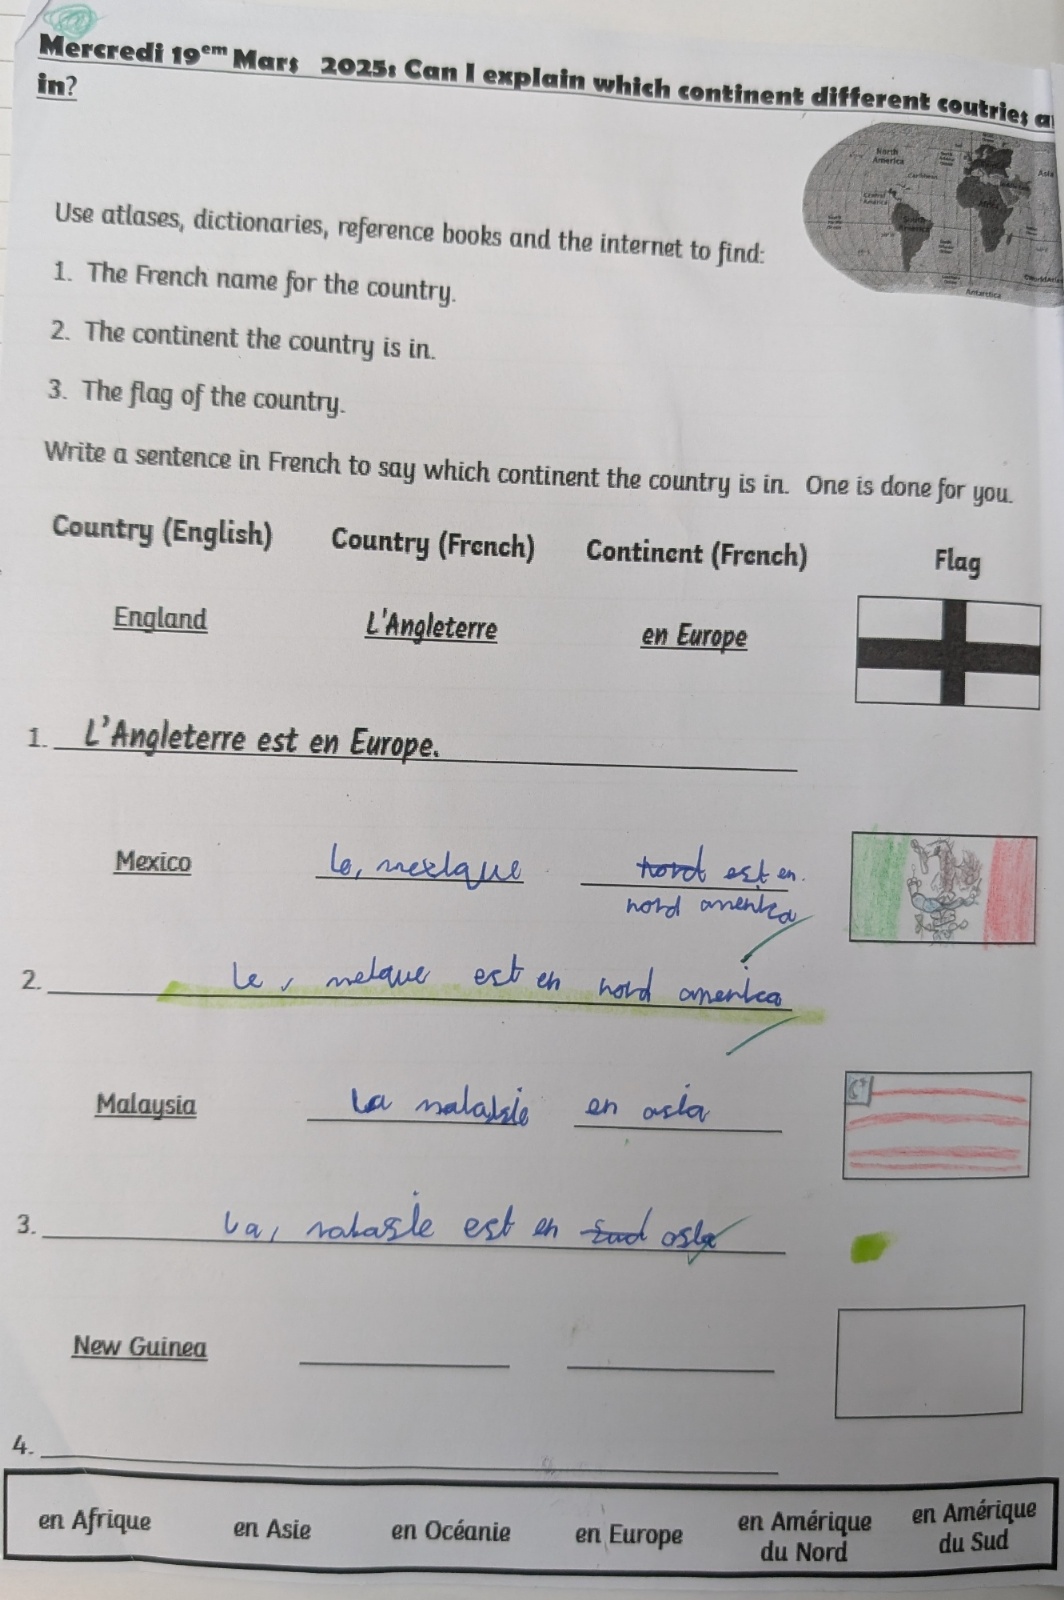 Mercredi 19em Mars 2025: Can I explain which continent different coutries a
in?
North America
Asia
Africa
South America
Antarctica
Use atlases, dictionaries, reference books and the internet to find:
1. The French name for the country.
2. The continent the country is in.
3. The flag of the country.
Write a sentence in French to say which continent the country is in. One is done for you.
Country (English) Country (French) Continent (French) Flag
England L'Angleterre en Europe
1. L'Angleterre est en Europe.
Mexico le, mexique nord est en.
nord amerika
2. le, melque est en nord amerika
Malaysia La malaisie en asia
3. La, malasie est en sud asia
New Guinea
4.
en Afrique en Asie en Océanie en Europe en Amérique du Nord en Amérique du Sud